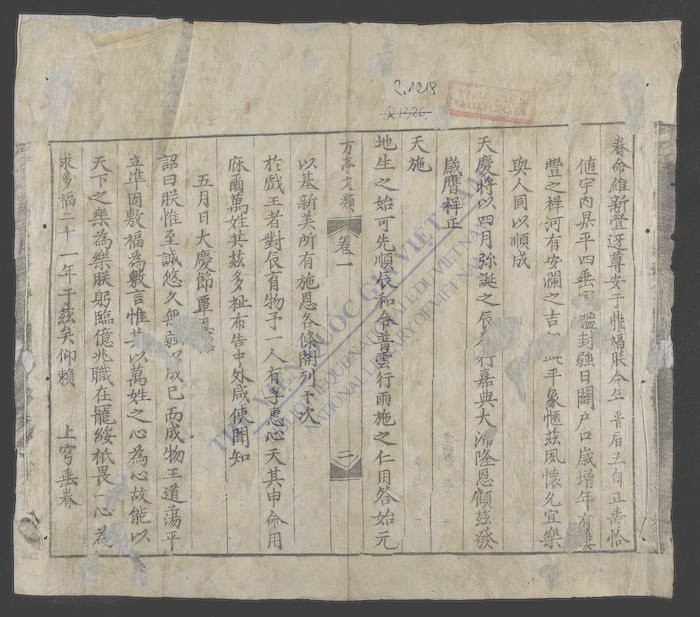 R.1318
R1326
THƯ VIỆN
QUỐC GIA
眷命維新疊迓尊安于惟福朕今年晉居五旬正壽恰
值宇內昇平四垂寧謐封疆日闢户口歲增年有
豐之禪河有安瀾之吉 平象愜茲夙懷允宜樂
與人同以順成
天慶將以四月弥誕之辰 行嘉典大沛隆恩顧茲發
歲膺禪正
天施
地生之始可先順辰和令普雲行雨施之仁用答始元
方亭文類
卷一
二
以基新美所有施恩各條開列于次
於戲王者對辰育物予一人有孚惠心天其申命用
庥爾萬姓共茲多祉布告中外咸使聞知
五月日大慶節覃恩詔
詔曰朕惟至誠悠久無疆以成已而成物王道蕩平
立準固敷福為敷言惟其以萬姓之心為心故能以
天下之樂為樂朕躬臨億兆職在寵綏祗畏一心為
求多福二十一年于茲矣仰賴 上穹垂眷
THƯ VIỆN QUỐC GIA VIỆT NAM
BIBLIOTHEQUE NATIONALE DU VIETNAM
NATIONAL LIBRARY OF VIETNAM